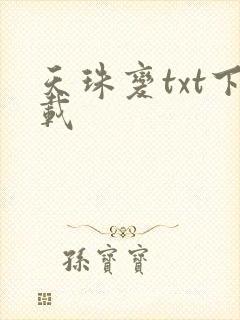 天珠變txt下
載
孫寶寶